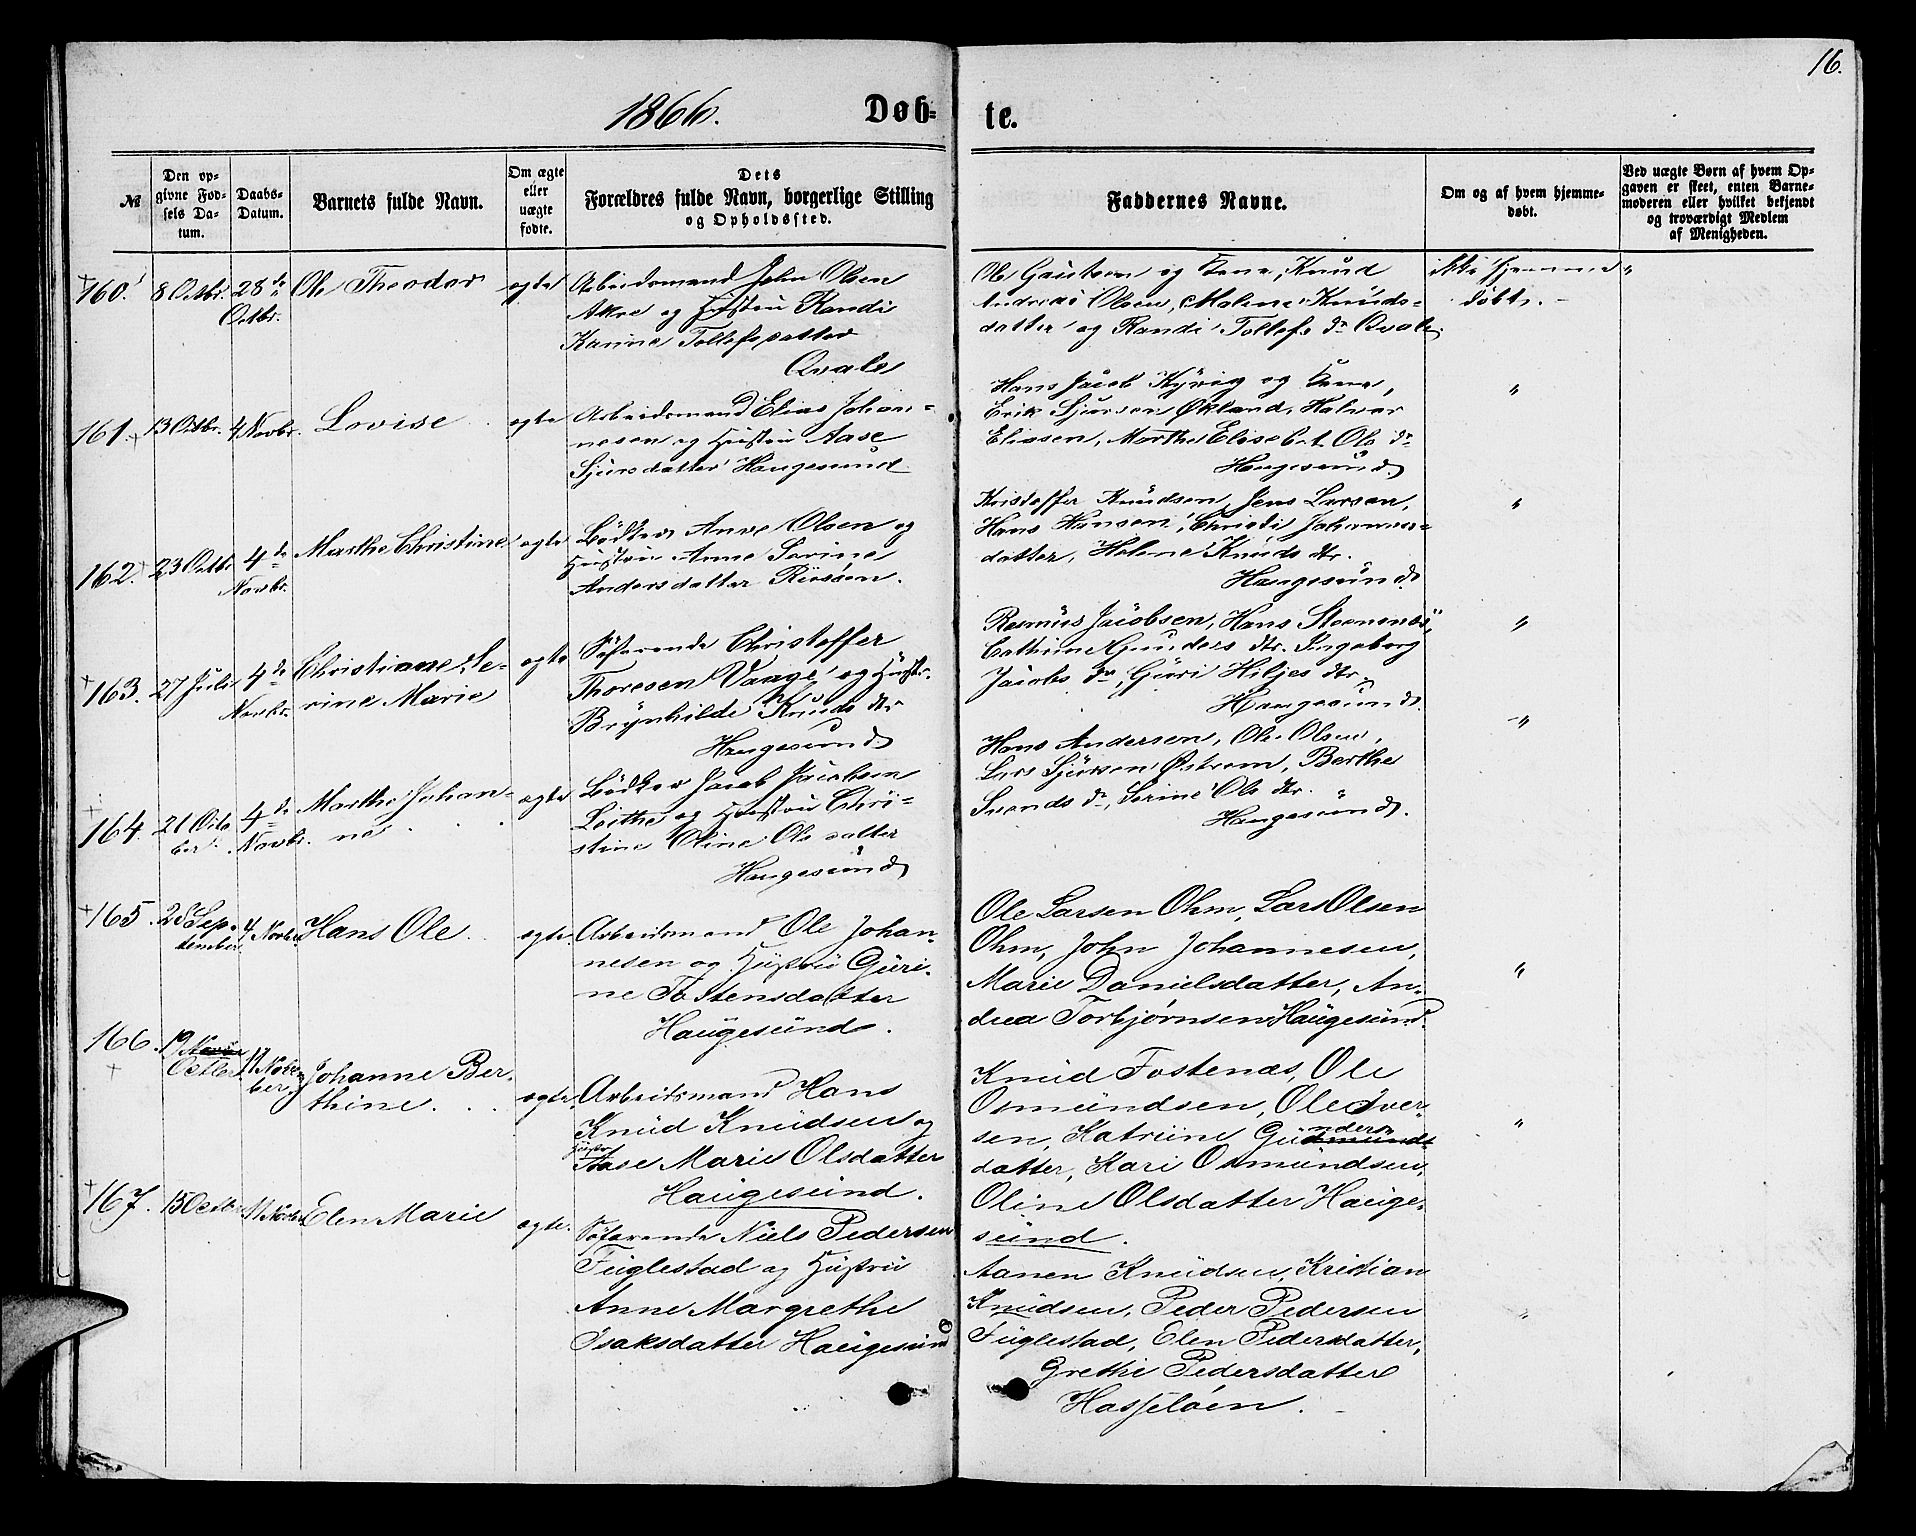 16.
1866. Døb- te.
№
Den op-
givne Fød-
sels Da-
tum.
Daabs-
Datum.
Barnets fulde Navn.
Om ægte
eller
uægte
fødte.
Dets
Forældres fulde Navn, borgerlige Stilling
og Opholdssted.
Faddernes Navne.
Om og af hvem hjemme-
døbt.
Ved uægte Børn af hvem Op-
gaven er skeet, enten Barne-
moderen eller hvilket bekjendt
og troværdigt Medlem
af Menigheden.
160. 8 Octbr. 28de Octbr. Ole Theodor ægte
Arbeidsmand John Olsen
Akre og Hustru Randi
Karine Tollefsdatter
Qvale
Ole Gautsen og Kone, Knud
Andreas Olsen, Malene Knuds-
datter og Randi Tollefs dr Qvale
ikke hjemme
døbt. "
161. 13 Octbr. 4 Novbr. Lovise ægte
Arbeidsmand Elias Johan-
nesen og Hustru Aase
Sjursdatter Haugesund
Hans Jacob Kyvig og Kone,
Erik Sjursen Økland, Halvor
Eliasen, Marthe Elisebet Ols dr
Haugesund
"
162. 23 Octbr 4de Novbr. Marthe Christine ægte
Bødker Anve Olsen og
Hustru Anne Serine
Andersdatter Risøen.
Kristoffer Knudsen, Jens Larsen,
Hans Hansen, Christi Johannes-
datter, Helene Knuds dtr.
Haugesund
"
163. 27 Juli 4de Novbr. Christiane Se-
rine Marie
ægte
Søfarende Christoffer
Thoresen Vaage og Hustr.
Brynhilde Knuds dtr
Haugesund
Rasmus Jacobsen, Hans Steensnæs,
Cathrine Gunders dtr. Ingeborg
Jacobs dr, Guri Hiljes dtr.
Haugesund.
"
164. 21 Octo
ber. 4de Novbr. Marthe Johan-
ne
ægte
Bødker Jacob Jacobsen
Leithe og Hustru Chri-
stine Oline Ols datter
Haugesund
Hans Andersen, Ole Olsen,
Lars Sjursen Østrem, Berthe
Svends dr, Serine Ols dtr.
Haugesund.
"
165. 28 Sep-
tember. 4 Novbr Hans Ole ægte.
Arbeidsmand Ole Johan-
nesen og Hustru Guri-
ne Tostensdatter
Haugesund.
Ole Larsen Ohm, Lars Olsen
Ohm, John Johannesen,
Marie Danielsdatter, An-
drea Torbjørnsen Haugesund.
"
166. 19 Octbr. 11 Novem-
ber. Johanne Ber-
thine.
ægte.
Arbeidsmand Hans
Knud Knudsen og
Hustru
Aase Marie Olsdatter
Haugesund.
Knud Fostenæs, Ole
Osmundsen, Ole Iver-
sen, Katrine Gunders
datter, Kari Osmundsen,
Oline Olsdatter Hauge-
sund.
"
167. 15 Octbr 11 Novbr Elen Marie ægte.
Søfarende Niels Pedersen
Fuglestad og Hustru
Anne Margrethe
Isaksdatter Haugesund
Aanen Knudsen, Kristian
Knudsen, Peder Pedersen
Fuglestad, Elen Pedersdatter,
Grethe Pedersdatter
Hasseløen.
"